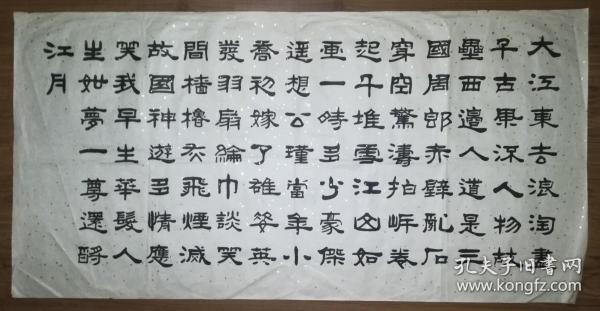 大江東去浪淘盡
千古風流人物故
壘西邊人道是三
國周郎赤壁亂石
穿空驚濤拍岸卷
起千堆雪江山如
画一時多少豪傑
遥想公瑾當年小
喬初嫁了雄姿英
發羽扇綸巾談笑
間檣櫓灰飛煙滅
故国神遊多情應
笑我早生華髮人
生如夢一尊還酹
江月
孔夫子旧書网
www.kongfz.com